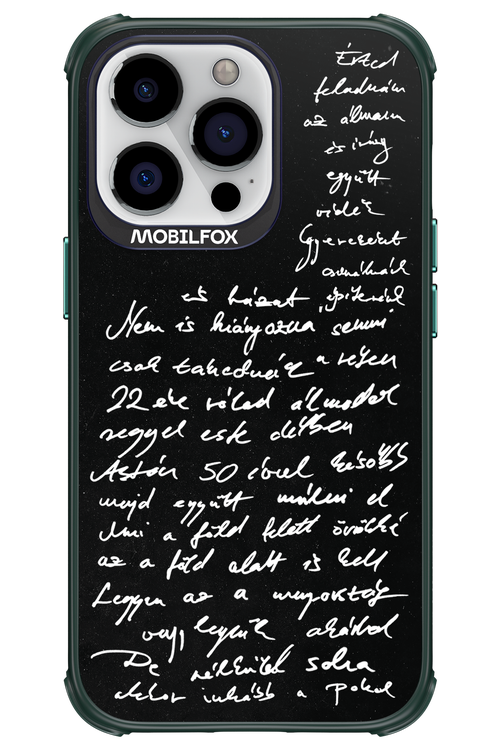 MOBILFOX
Érted
feladnám
az álmaim
és így
együtt
vidék
Gyerekeket
csinálnánk
és házat építenénk
Nem is hiányozna semmi
csak takednék a réten
22 éve rólad álmodok
reggel este délben
Aztán 50 évvel később
majd együtt múlni el
Ami a föld felett örökké
az a föld alatt is kell
Legyen az a mennyország
vagy legyünk akárhol
De nélküled soha
akkor inkább a Pokol